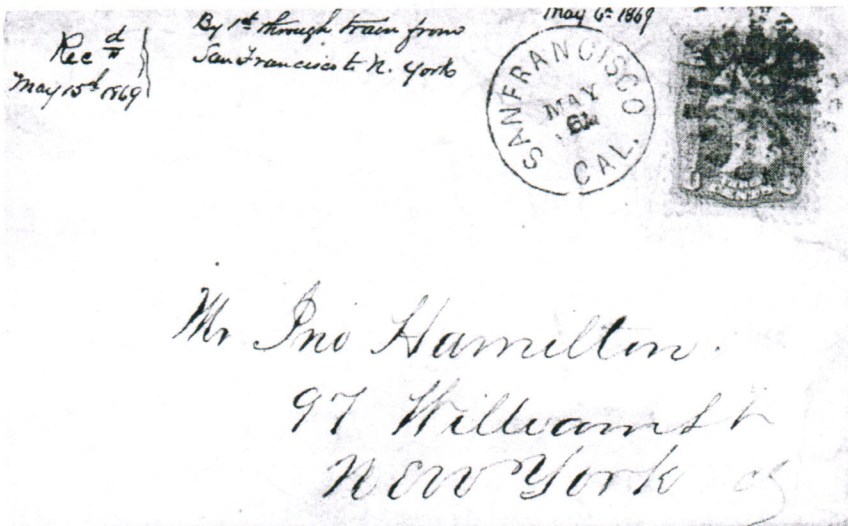 Recd
May 15th 1869
By 1st through train from
San Francisco to N. York
May 6th 1869
SAN FRANCISCO
MAY
6
CAL.
THREE
CENTS
Mr Jno Hamilton.
97 William St
New York